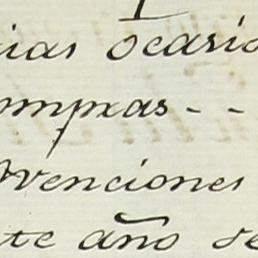 ias ocasio
ompras - -
venciones
te año se